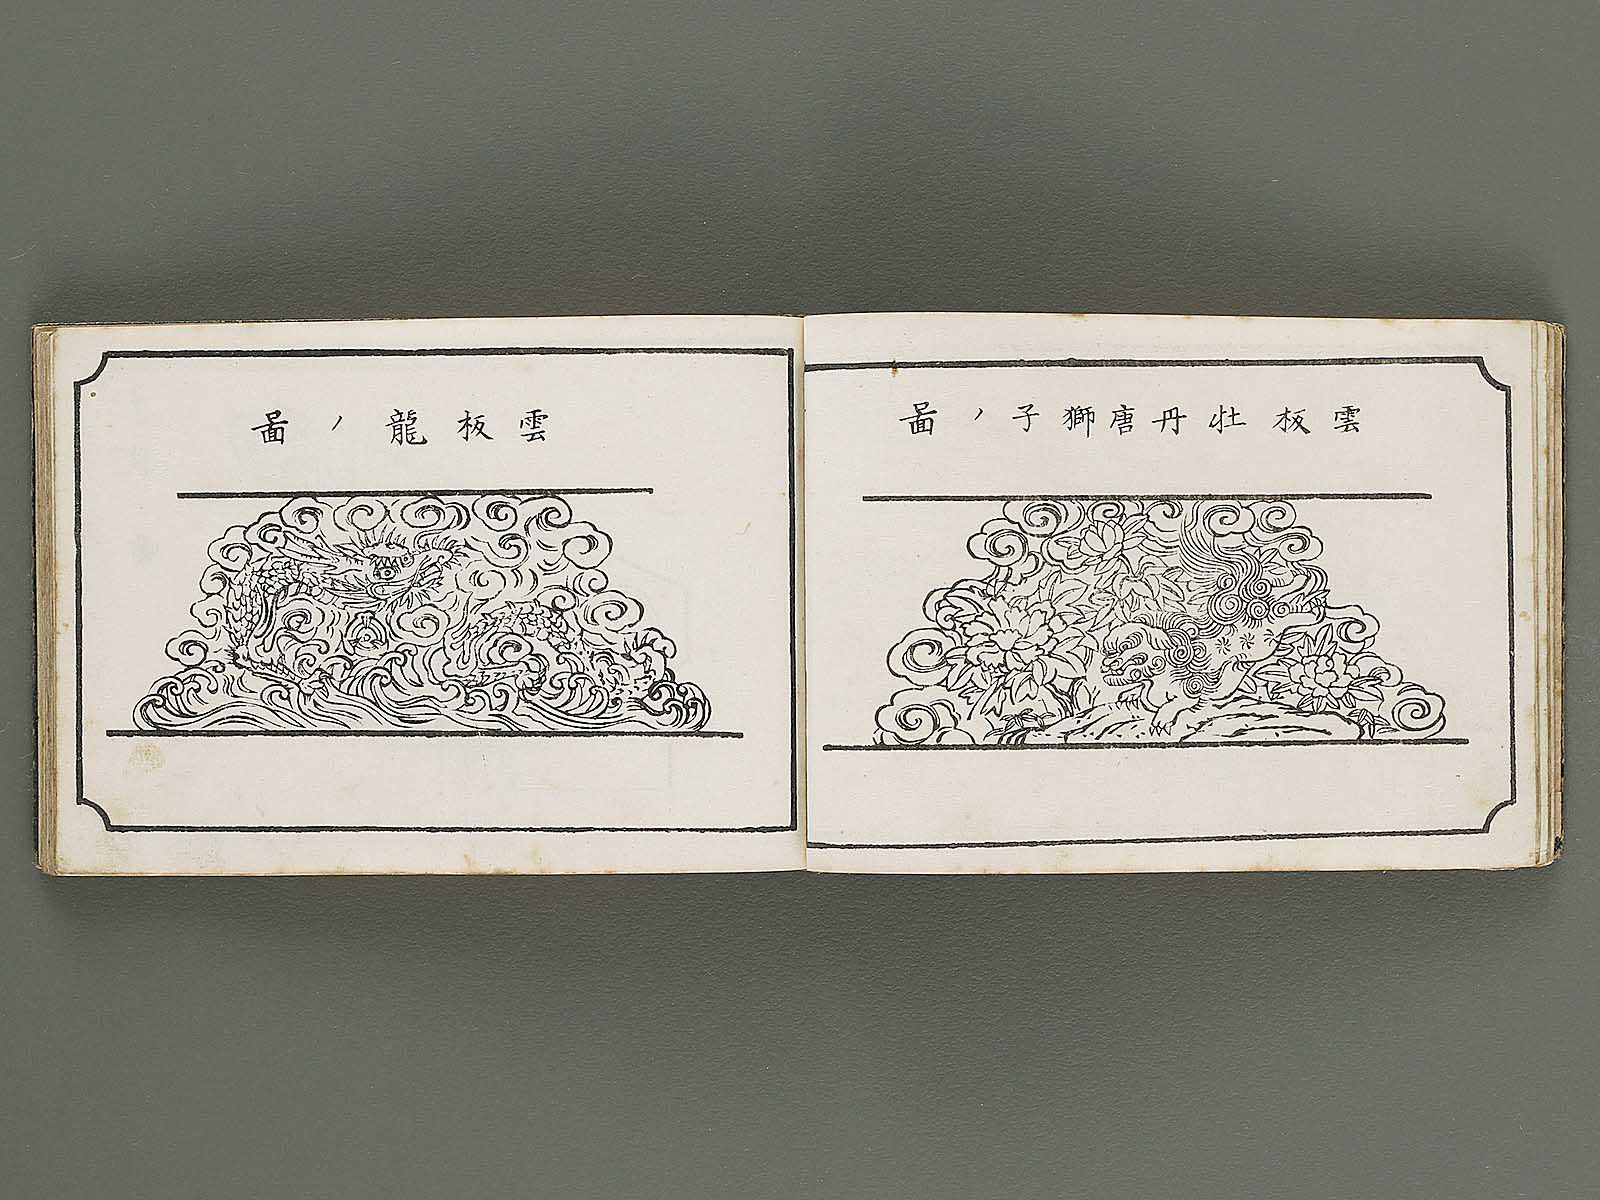 雲板牡丹唐獅子ノ啚
雲板龍ノ啚